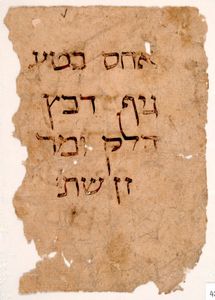 אחס בטע
גיף דכץ
הלק ומר
זן שת